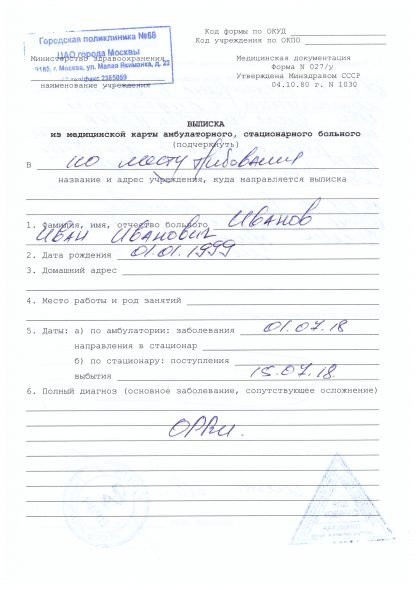 Городская поликлиника №68
ЦАО города Москвы
г. Москва, ул. Малая Якиманка, д. 22
2385059
Код формы по ОКУД
Код учреждения по ОКПО
Министерство здравоохранения
наименование учреждения
Медицинская документация
Форма N 027/у
Утверждена Минздравом СССР
04.10.80 г. N 1030
ВЫПИСКА
из медицинской карты амбулаторного, стационарного больного
(подчеркнуть)
В по месту требования
название и адрес учреждения, куда направляется выписка
1. Фамилия, имя, отчество больного Иванов
Иван Иванович
2. Дата рождения 01.01.1999
3. Домашний адрес
4. Место работы и род занятий
5. Даты: а) по амбулатории: заболевания 01.07.18
направления в стационар
б) по стационару: поступления
выбытия 15.07.18
6. Полный диагноз (основное заболевание, сопутствующее осложнение)
ОРВИ.